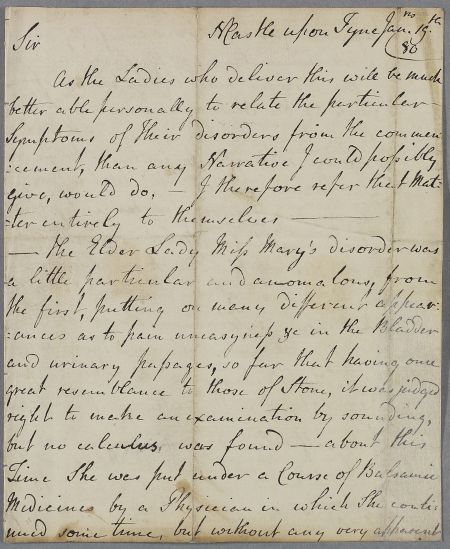 NCastle upon Tyne Janry 19th
Sir 86
As the Ladies who deliver this will be much
better able personally to relate the particular
Symptoms of their disorders from the commen
:cement, than any Narrative I could possibly
give, would do, — I therefore refer that Mat-
:ter entirely to themselves ———
— the Elder Lady Miss Mary's disorder was
a little particular and anomalous, from
the first, putting on many different appear-
:ances as to pain uneasyness &c in the Bladder
and urinary passages, so far that having once
great resemblance to those of Stone, it was judged
right to make an examination by sounding,
but no calculus was found — about this
Time She was put under a Course of Balsamic
Medicines by a Physician in which She conti-
nued some time, but without any very apparent